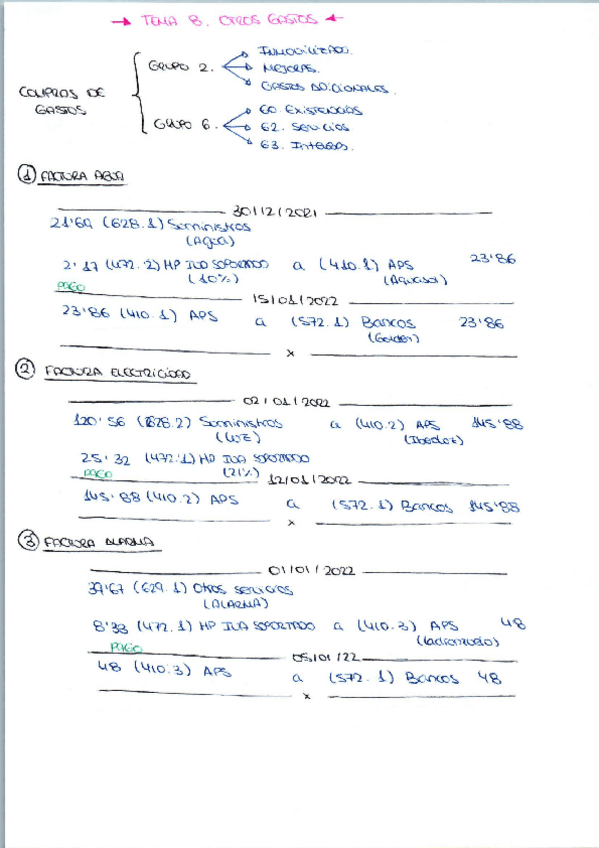 → TEMA 8. OTROS GASTOS ←
COMPRAS DE GASTOS
GRUPO 2.
INMOVILIZADO.
MEJORAS.
GASTOS ADICIONALES.
GRUPO 6.
60. Existencias
62. Servicios
63.
① FACTURA AGUA
30/12/2021
21'69 (628.1) Suministros
(Agua)
2'17 (472.2) HP IVA SOPORTADO a (410.1) APS 23'86
(10%) (Aquasol)
PAGO
15/01/2022
23'86 (410.1) APS a (572.1) Bancos 23'86
x
② FACTURA ELECTRICIDAD
02/01/2022
120'56 (628.2) Suministros a (410.2) APS 145'88
(LUZ)
25'32 (472.1) HP IVA SOPORTADO
(21%)
PAGO
12/01/2022
145'88 (410.2) APS a (572.1) Bancos 145'88
x
③ FACTURA ALARMA
01/01/2022
39'67 (629.1) Otros servicios
(ALARMA)
8'33 (472.1) HP IVA SOPORTADO a (410.3) APS 48
PAGO
05/01/22
48 (410.3) APS a (572.1) Bancos 48
x